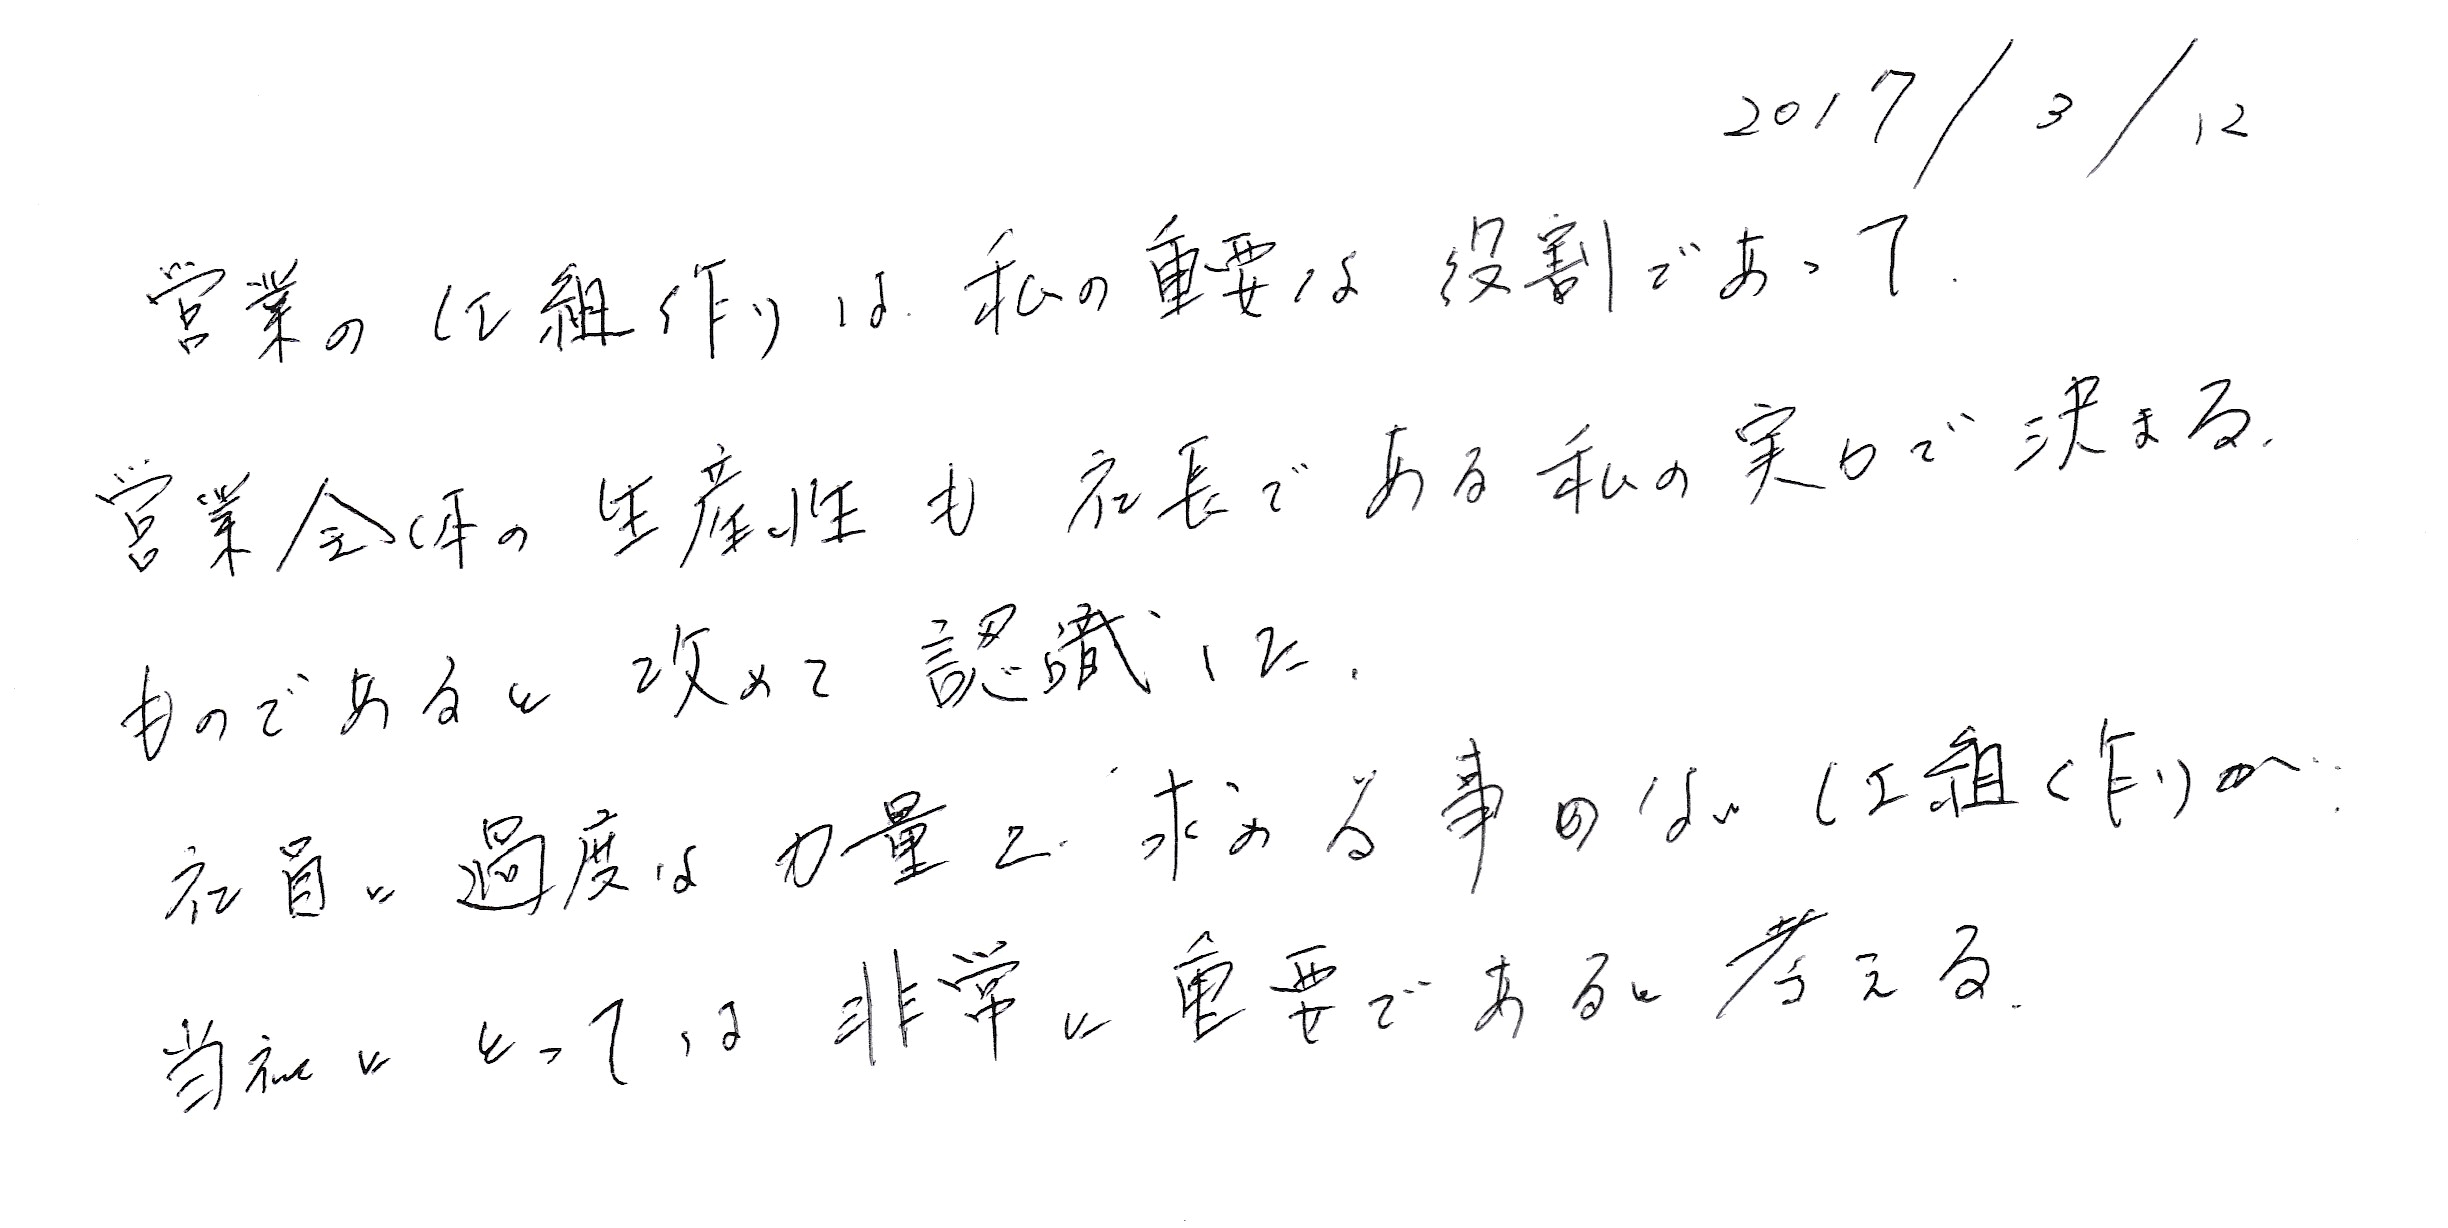 2017/3/12
営業の仕組作りは私の重要な役割であって.
営業全体の生産性も社長である私の実力で決まる.
ものであると改めて認識した.
社員に過度な力量を求める事のない仕組作りが
当社にとっては非常に重要であると考える.